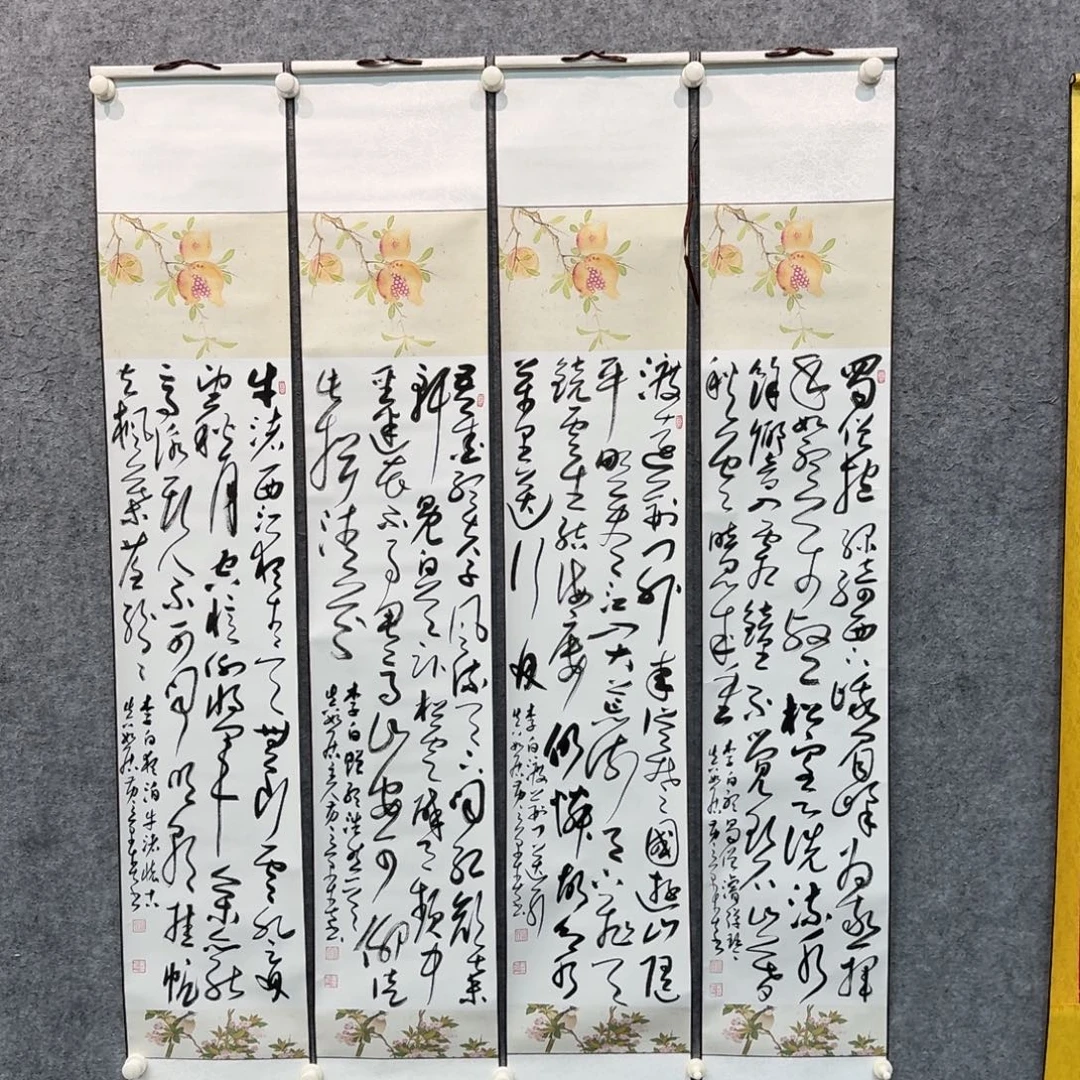 蜀僧抱綠綺西下峨眉峰为我一揮
手如聽万壑松客心洗流水
餘響入霜鐘不覺碧山暮
秋雲暗几重
李白聽蜀僧濬弹琴
渡远荆门外来從楚國遊山隨
平野尽江入大荒流月下飛天
鏡雲生结海楼仍憐故乡水
萬里送行舟
李白渡荆门送别
吾爱孟夫子风流天下闻红颜弃
軒冕白首卧松雲醉月頻中
聖迷花不事君高山安可仰徒
此揖清芬
李白贈孟浩然
牛渚西江夜青天無片雲登舟
望秋月空忆谢將軍余亦能
高詠斯人不可闻明朝挂帆
去枫葉落纷纷
李白夜泊牛渚怀古